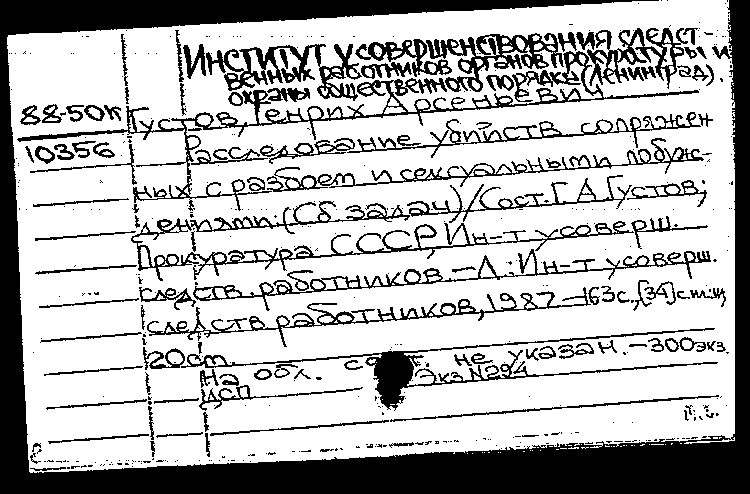 ИНСТИТУТ УСОВЕРШЕНСТВОВАНИЯ СЛЕДСТ-
ВЕННЫХ РАБОТНИКОВ ОРГАНОВ ПРОКУРАТУРЫ И
ОХРАНЫ ОБЩЕСТВЕННОГО ПОРЯДКА (ЛЕНИНГРАД).
88-50К
Густов, Генрих Арсеньевич
10356
Расследование убийств сопряжен
ных с разбоем и сексуальными побуж-
дениями: (Сб. задач)/Сост. Г.А. Густов;
Прокуратура СССР, Ин-т усоверш.
следств. работников. -Л.: Ин-т усоверш.
следств работников, 1987 -163с., [34] с.ил.;
20см.
На обл. сост. не указан. -300экз.
ДСП Экз. N294